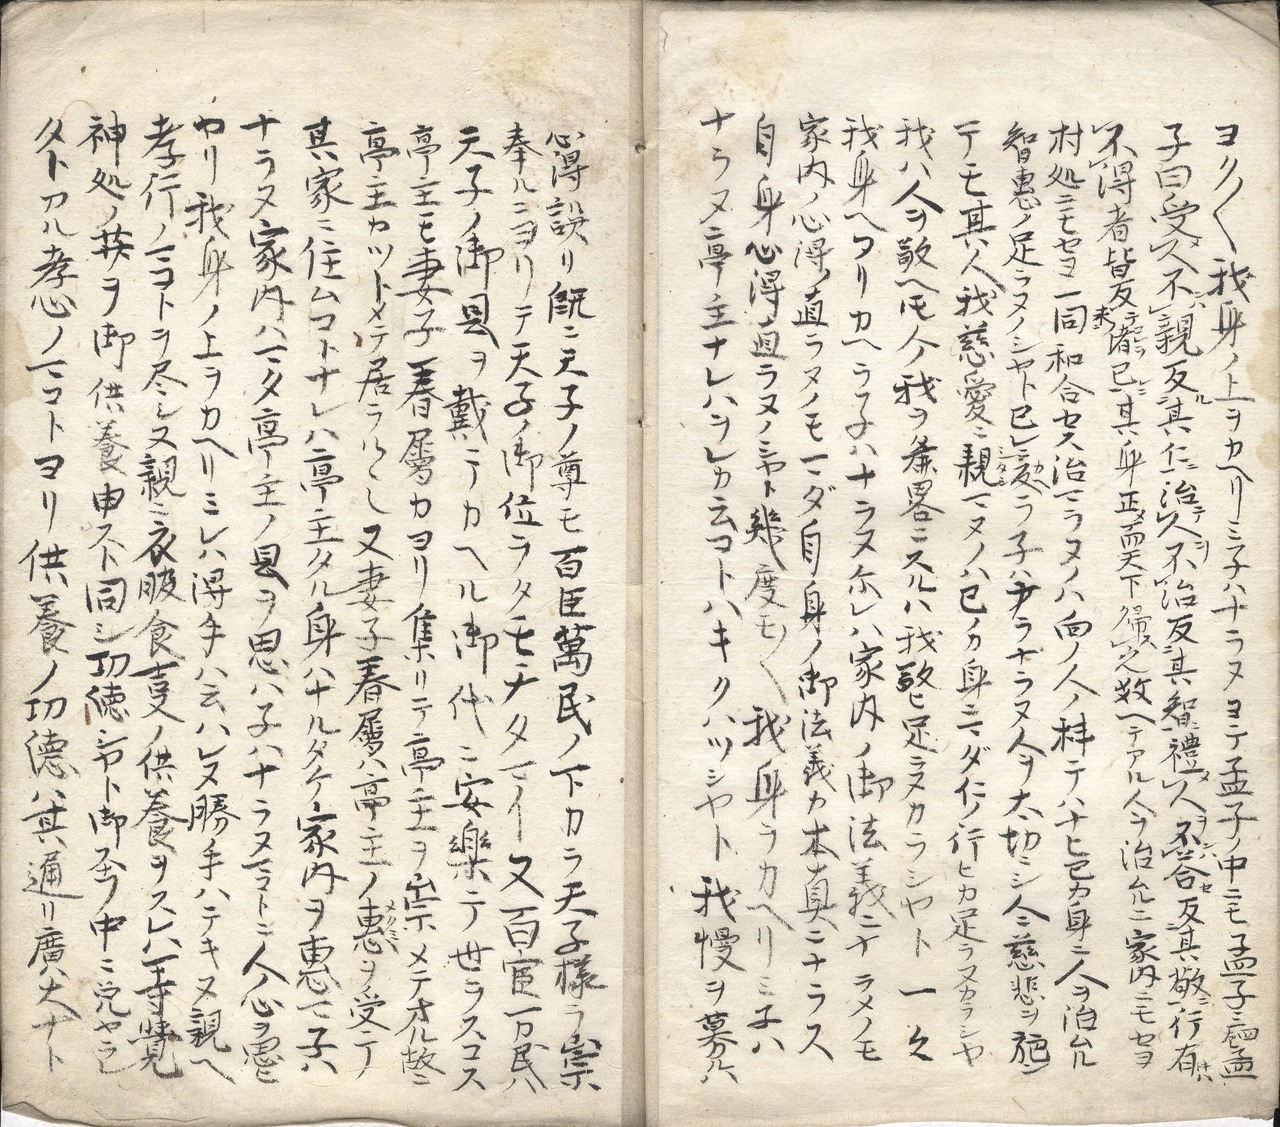 ヨク〱我身ノ上ヲカヘリミ子ハナラヌヨテ孟子ノ中ニモ孟子ニ曰孟
子曰愛人不親反其仁治人不治反其智禮人不答反其敬行有
不得者皆反求諸己其身正而天下歸之教ヘテアル人ヲ治ルニ家内ニモセヨ
村処ニモセヨ一同和合セス治マラヌハ向ノ人ノ持テハナヒ己カ身ニ人ヲ治ル
智惠ノ足ラヌノシヤト己レニ反ラ子ハナラヌ人ヲ大切シ人ニ慈悲ヲ施シ
テモ其人我慈愛ニ親マヌノハ己ノカ身ニマダ仁ノ行ヒカ足ラヌカラシヤ
我ハ人ヲ敬ヘモ人ノ我ヲ麁畧ニスルハ我敬ヒ足ラヌカラシヤト一々
我身ヘフリカヘラ子ハナラヌ尓レハ家内ノ御法義ニナラヌノモ
家内ノ心得ノ直ラヌノモマダ自身ノ御法義カ本真ニナラス
自身心得直ラヌノシヤト幾度モ〱我身ヲカヘリミ子ハ
ナラヌニ亭主ナレハヲレカ云コトハキクハツシヤト我慢ヲ募ルハ
心得誤リ既ニ天子ノ尊モ百臣萬民ノ下カラ天子様ヲ崇
奉ルニヨリテ天子ノ御位ヲタモチタマイ又百官万民ハ
天子ノ御恩ヲ戴テカヘル御代ニ安樂ニテ世ヲスコス
亭主モ妻子眷屬カヨリ集リテ亭主ヲ崇メテオル故ニ
亭主カツトメテ居ラルヽシ又妻子眷屬ハ亭主ノ惠ヲ受ニテ
其家ニ住ムコトナレハ亭主タル身ハナルタケ家内ヲ惠マ子ハ
ナラヌ家内ハマタ亭主ノ恩ヲ思ハ子ハナラヌマコトニ人ノ心ヲ
カリ我身ノ上ヲカヘリミレハ得手ハ云ハレヌ勝手ハテキヌ親ヘ
孝行ノマコトヲ尽シ又親ニ衣服食事ノ供養ヲスレハ等覺
神処ノ菩ヲ御供養申スト同シ功徳シヤト御圣ノ中ニ説ヤラ
タトアル孝心ノマコトヨリ供養ノ功德ハ其通リ廣大ナト